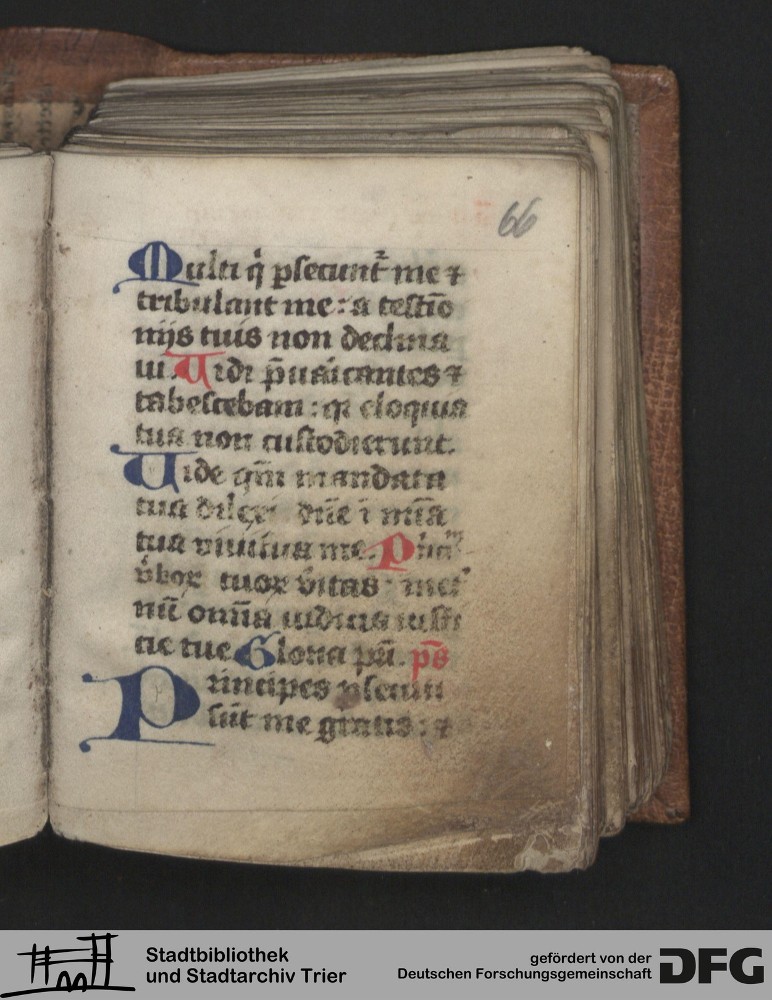 66
Multi q̇ ꝑsecunt᷑ me ⁊
tribulant me : a testīo
nijs tuis non declina
ui. Uidi p̄uaricantes ⁊
tabescebam : qꝛ eloquia
tua non custodierunt.
Uide qm̄ mandata
tua dilexi dn̄e ī mīa
tua uiuifica me. Pͥnci
v̄boꝝ tuoꝝ v̄itas : inet̉
nū om̄ia iudicia iusti
cie tue Gloria pri. ps̄
Principes ꝑsecuti
sūt me gratis : ⁊
Stadtbibliothek
und Stadtarchiv Trier
gefördert von der
Deutschen Forschungsgemeinschaft
DFG